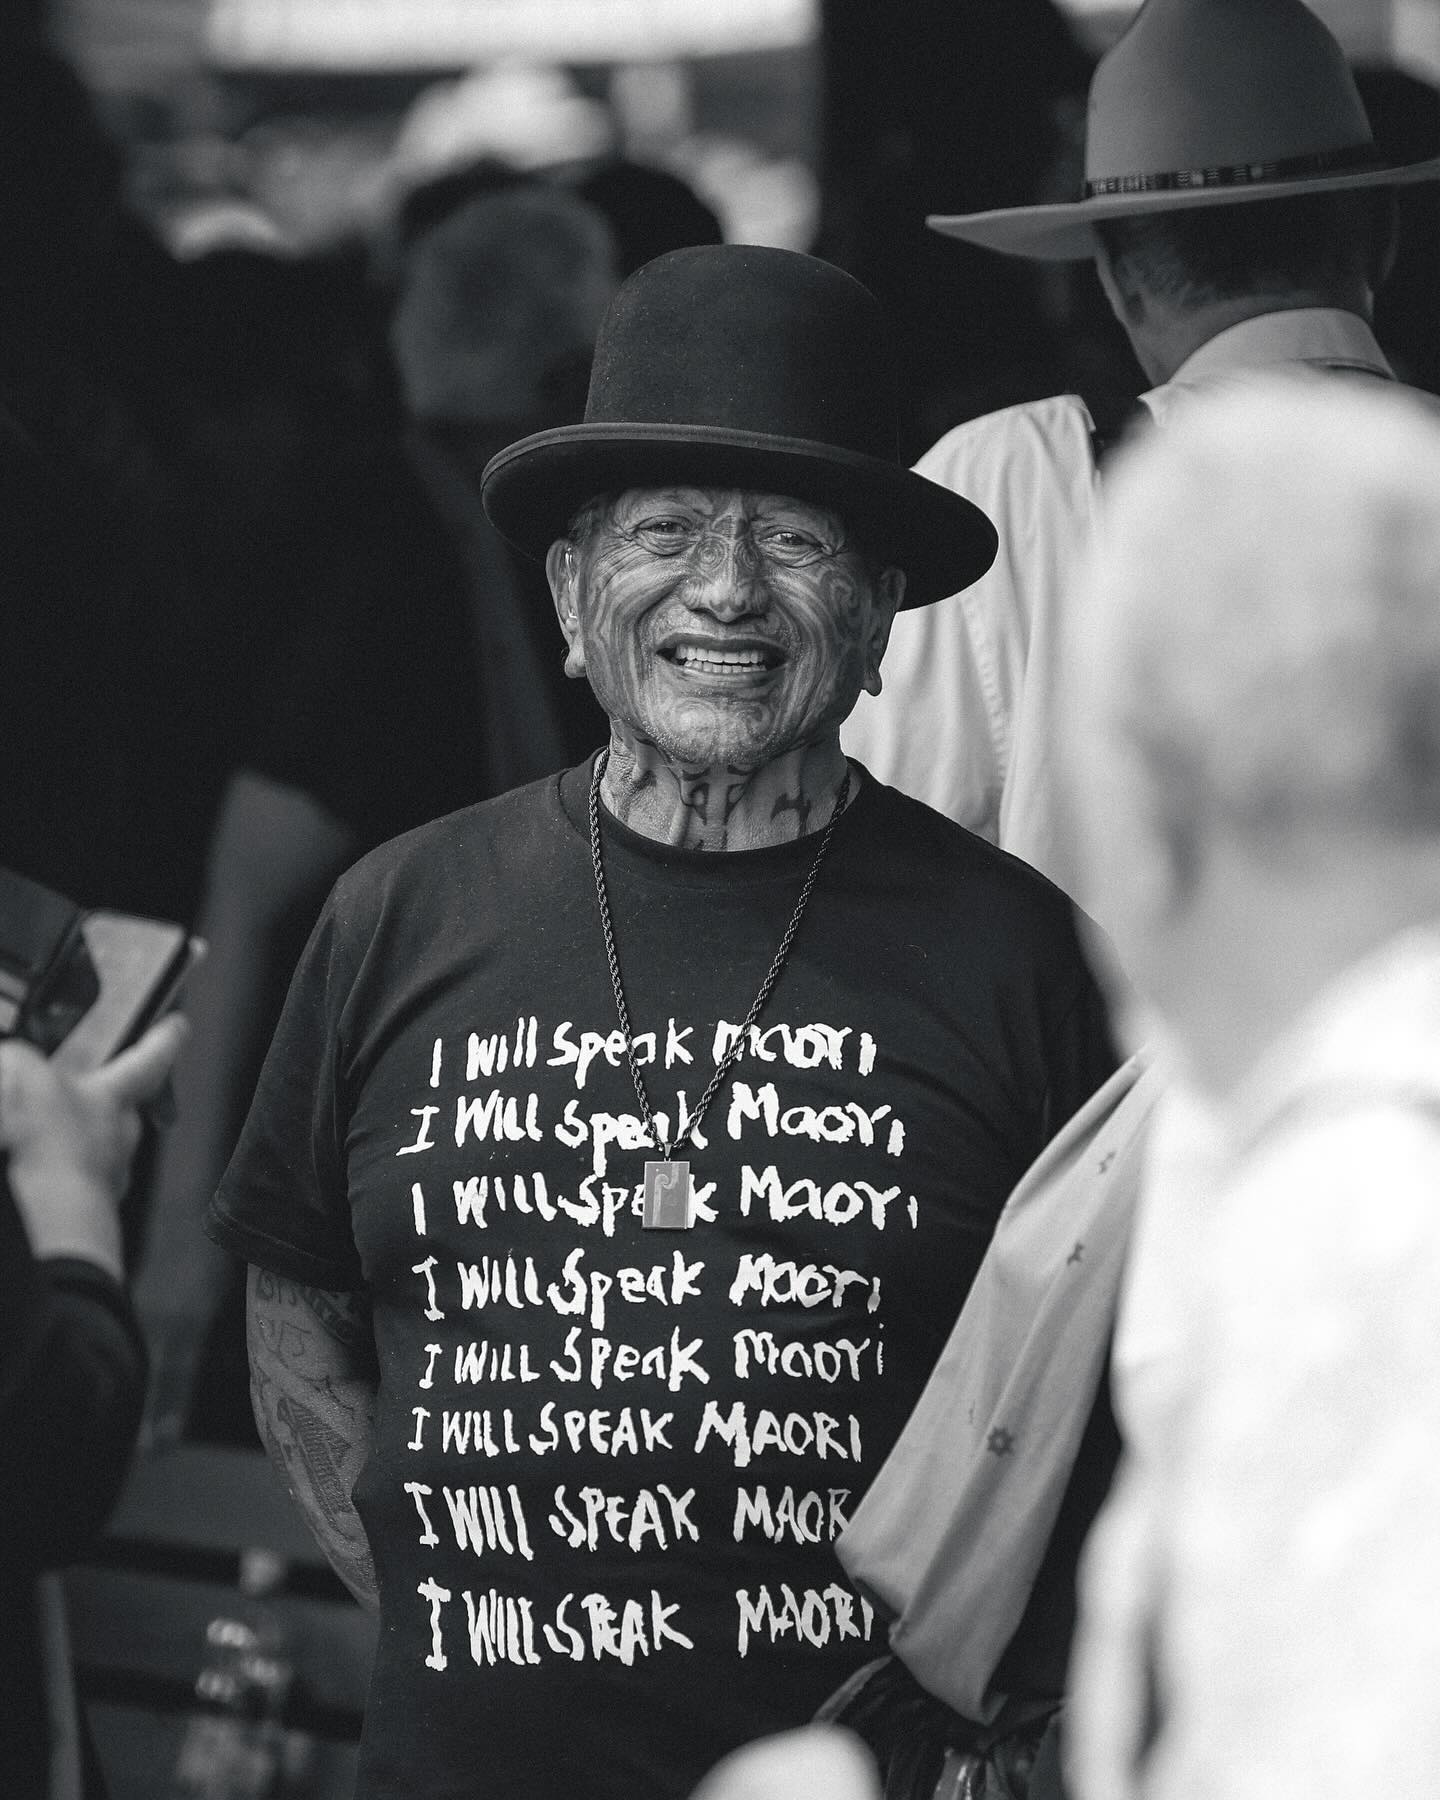 I Will Speak Maori
I Will Speak Maori
I Will Speak Maori
I Will Speak Maori
I Will Speak Maori
I WILL SPEAK MAORI
I WILL SPEAK MAOR
I WILL SPEAK MAORI